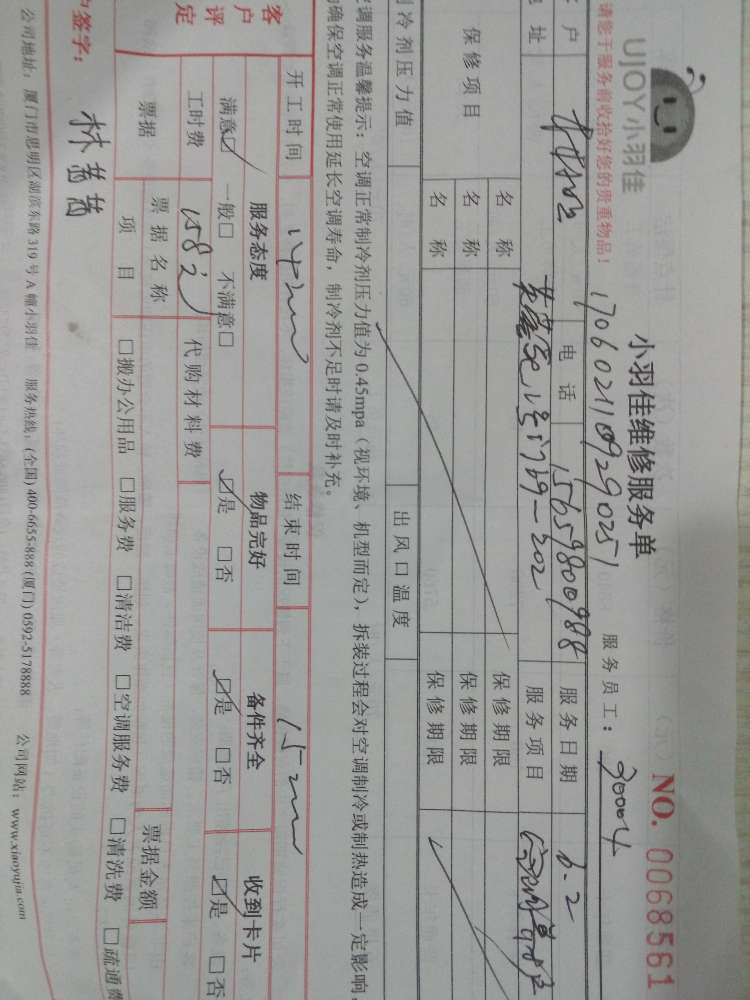 UJOY小羽佳
小羽佳维修服务单
NO. 0068561
请您于服务前收拾好您的贵重物品!
1706021109290251
服务员工: 30004
户 电话 15659800988 服务日期 6.2
址 -302 服务项目
保修项目 名称 保修期限
名称 保修期限
名称 保修期限
制冷剂压力值 出风口温度
调服务温馨提示:空调正常制冷剂压力值为 0.45mpa(视环境、机型而定),拆装过程会对空调制冷或制热造成一定影响,
确保空调正常使用延长空调寿命,制冷剂不足时请及时补充。
开工时间 结束时间
客户评定 服务态度 物品完好 备件齐全 收到卡片
满意☑ 一般□ 不满意□ ☑是 □否 ☑是 □否 ☑是 □否
工时费 158 代购材料费
票据 票据名称 票据金额
项目 □搬办公用品 □服务费 □清洁费 □空调服务费 □清洗费 □疏通费
户签字: 林茜茜
公司地址:厦门市思明区湖滨东路 319 号 A 幢小羽佳 服务热线:(全国) 400-6655-888 (厦门) 0592-5178888 公司网站:www.xiaoyujia.com